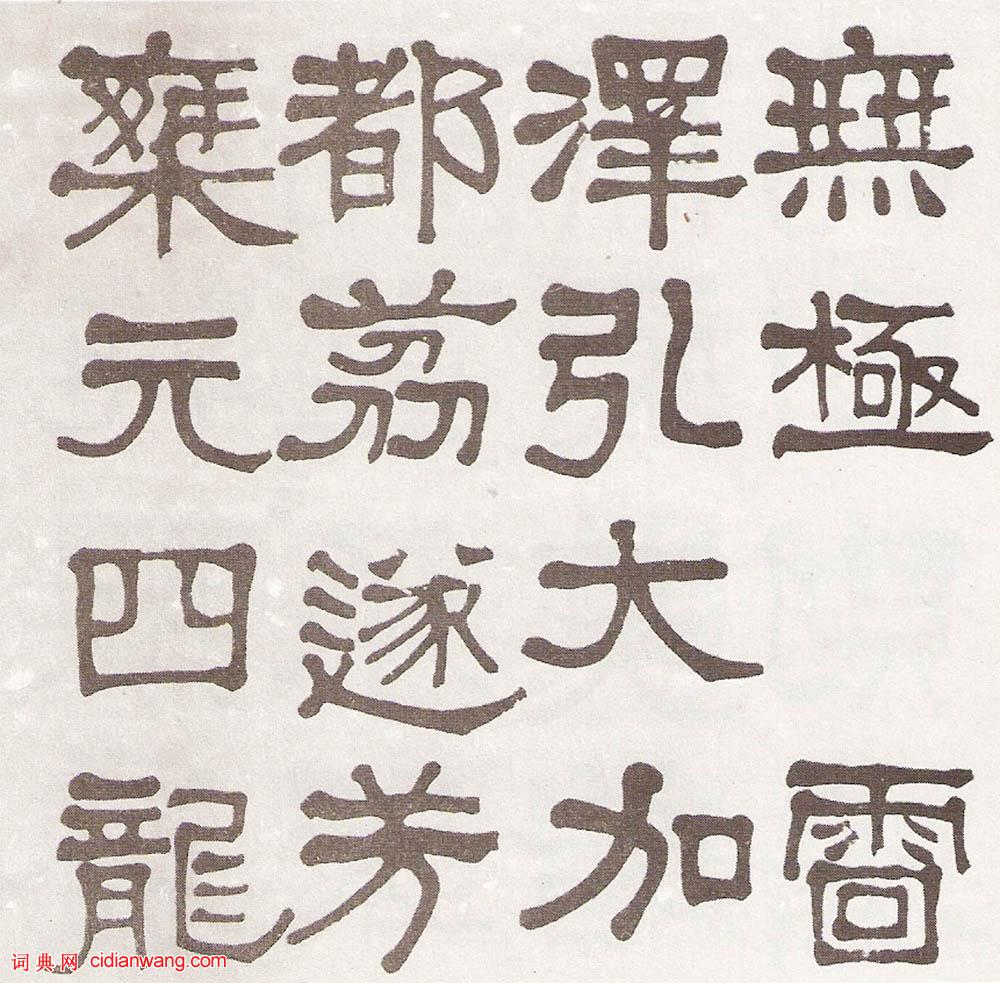 無極雷
澤弘大加
都荔遂芳
乘元四龍
词典网 cidianwang.com